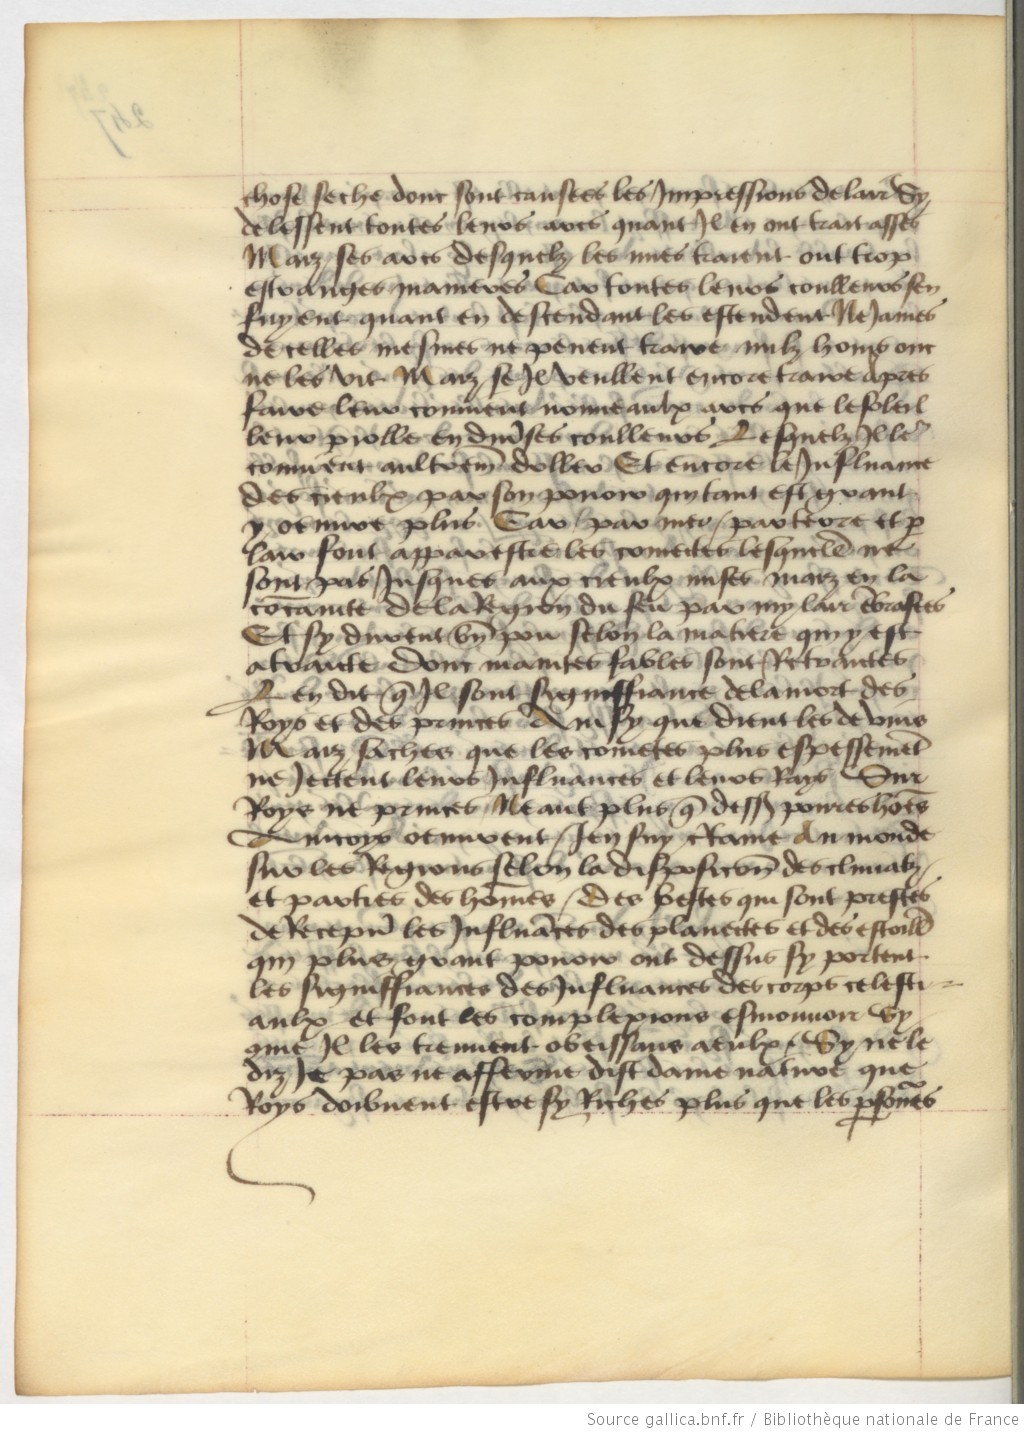 chose seche dont sont causees les Impressions de lair Sy
delessent toutes leurs arcs quant Il en ont trait asses
Maiz ses arcs desquelz les nues traient ont trop
estranges manieres Car toutes leurs coulleurs sen
fuyent quant en descendant les estendent Ne James
de celles mesmes ne peuent traire nulz homs onc
ne les vit Maiz se Il veullent encore traire Apres
faire leur convient nouueaulx arcs que le soleil
leur piolle En diuerses coulleurs Lesquelz Il le
convient aultrem doller Et encore le Influance
des cieulx par son pouoir qui tant est grant
y oeuure plus Car par mer / par terre et p
lair font apparestre les comettes lesquelle ne
sont pas Jusques aux cieulx mises maiz en la
de la Region du feu par my lair
Et sy durent bn pou selon la matiere qui y est
atraicte Dont maintes fables sont Retraictes
Len dit q Il sont signiffiance de la mort des
Roys et des princes Ainsy que dient les deuins
Maiz saches que les cometes plus espessemet
ne Jectent leurs Influances et leurs Rays Sur
Roys ne princes Ne aut plus q dess poures hoes
Aincoys oeuurent / Jen suy certaine Au monde
sur les Regions selon la disposicon des climatz /
et parties des homes / des bestes qui sont prestes
de Recepuoir les Influaces des planettes et des estoilles
qui plus grant pouoir ont dessus sy portent
les signiffiances des Influances des corps celesti-
aulx et font les complexions esmouuoir Sy
que Il les treuuent obeissans a eulx / Sy ne le
diz Je pas ne afferme dist dame nature que
Roys doibuent estre sy Riches plus que les psones